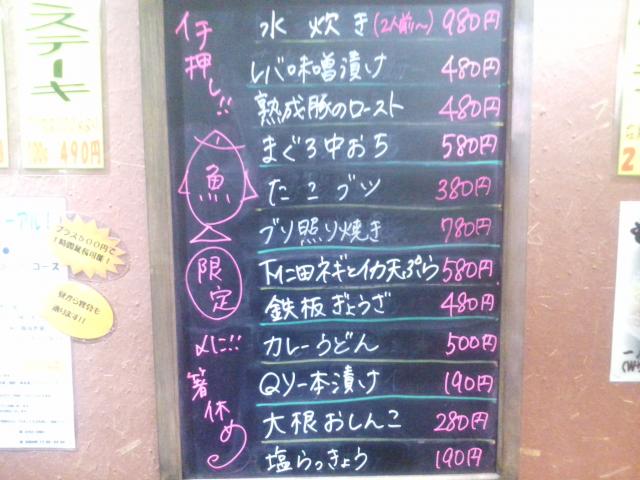 ステーキ
100g 490円
イチ押し!!
水炊き(2人前〜) 980円
レバ味噌漬け 480円
熟成豚のロースト 480円
魚
まぐろ中おち 580円
たこブツ 380円
ブリ照り焼き 780円
限定
下仁田ネギとイカ天ぷら 580円
鉄板ぎょうざ 480円
〆に!!
カレーうどん 500円
箸休め
Qリ一本漬け 190円
大根おしんこ 280円
塩らっきょう 190円
プラス500円で
1時間延長可能!
コース
昼から宴会も
承ります!!